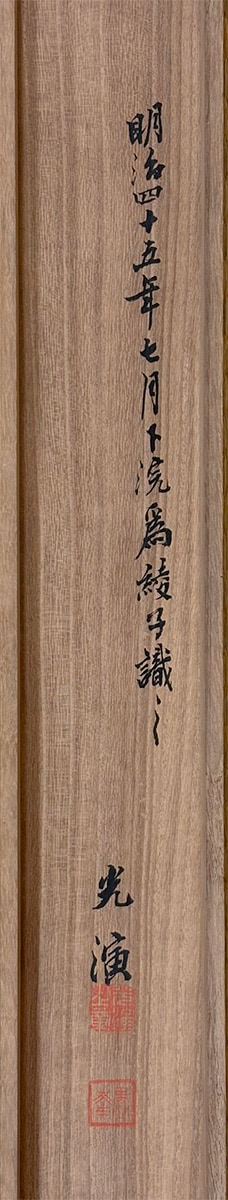 明治四十五年七月下浣為綾子識之
光演